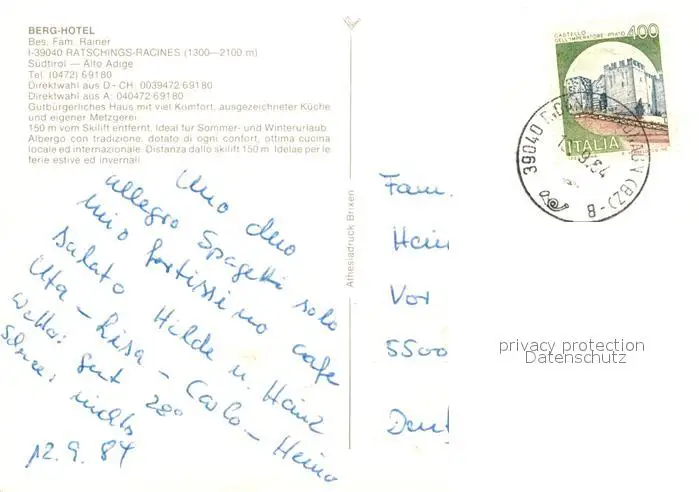 BERG-HOTEL
Bes. Fam. Rainer
I-39040 RATSCHINGS-RACINES (1300—2100 m)
Südtirol — Alto Adige
Tel. (0472) 69180
Direktwahl aus D - CH: 0039472 69180
Direktwahl aus A: 040472-69180
Gutbürgerliches Haus mit viel Komfort, ausgezeichneter Küche
und eigener Metzgerei.
150 m vom Skilift entfernt. Ideal für Sommer- und Winterurlaub.
Albergo con tradizione, dotato di ogni confort, ottima cucina
locale ed internazionale. Distanza dallo skilift 150 m. Idelae per le
ferie estive ed invernali.
Uno duo
allegro Spagetti solo
mio fortissimo cafe
salato Hilde u. Heinz
Uta - Lisa - Carlo - Heino
Wetter: gut 28°
Schnee: nichts
12.9.84
Athesiadruck Brixen
CASTELLO
DELL'IMPERATORE - PRATO
400
ITALIA
39040
(BZ)
- B -
9.84
Fam.
Hein
Vor
5500
Deut
privacy protection
Datenschutz